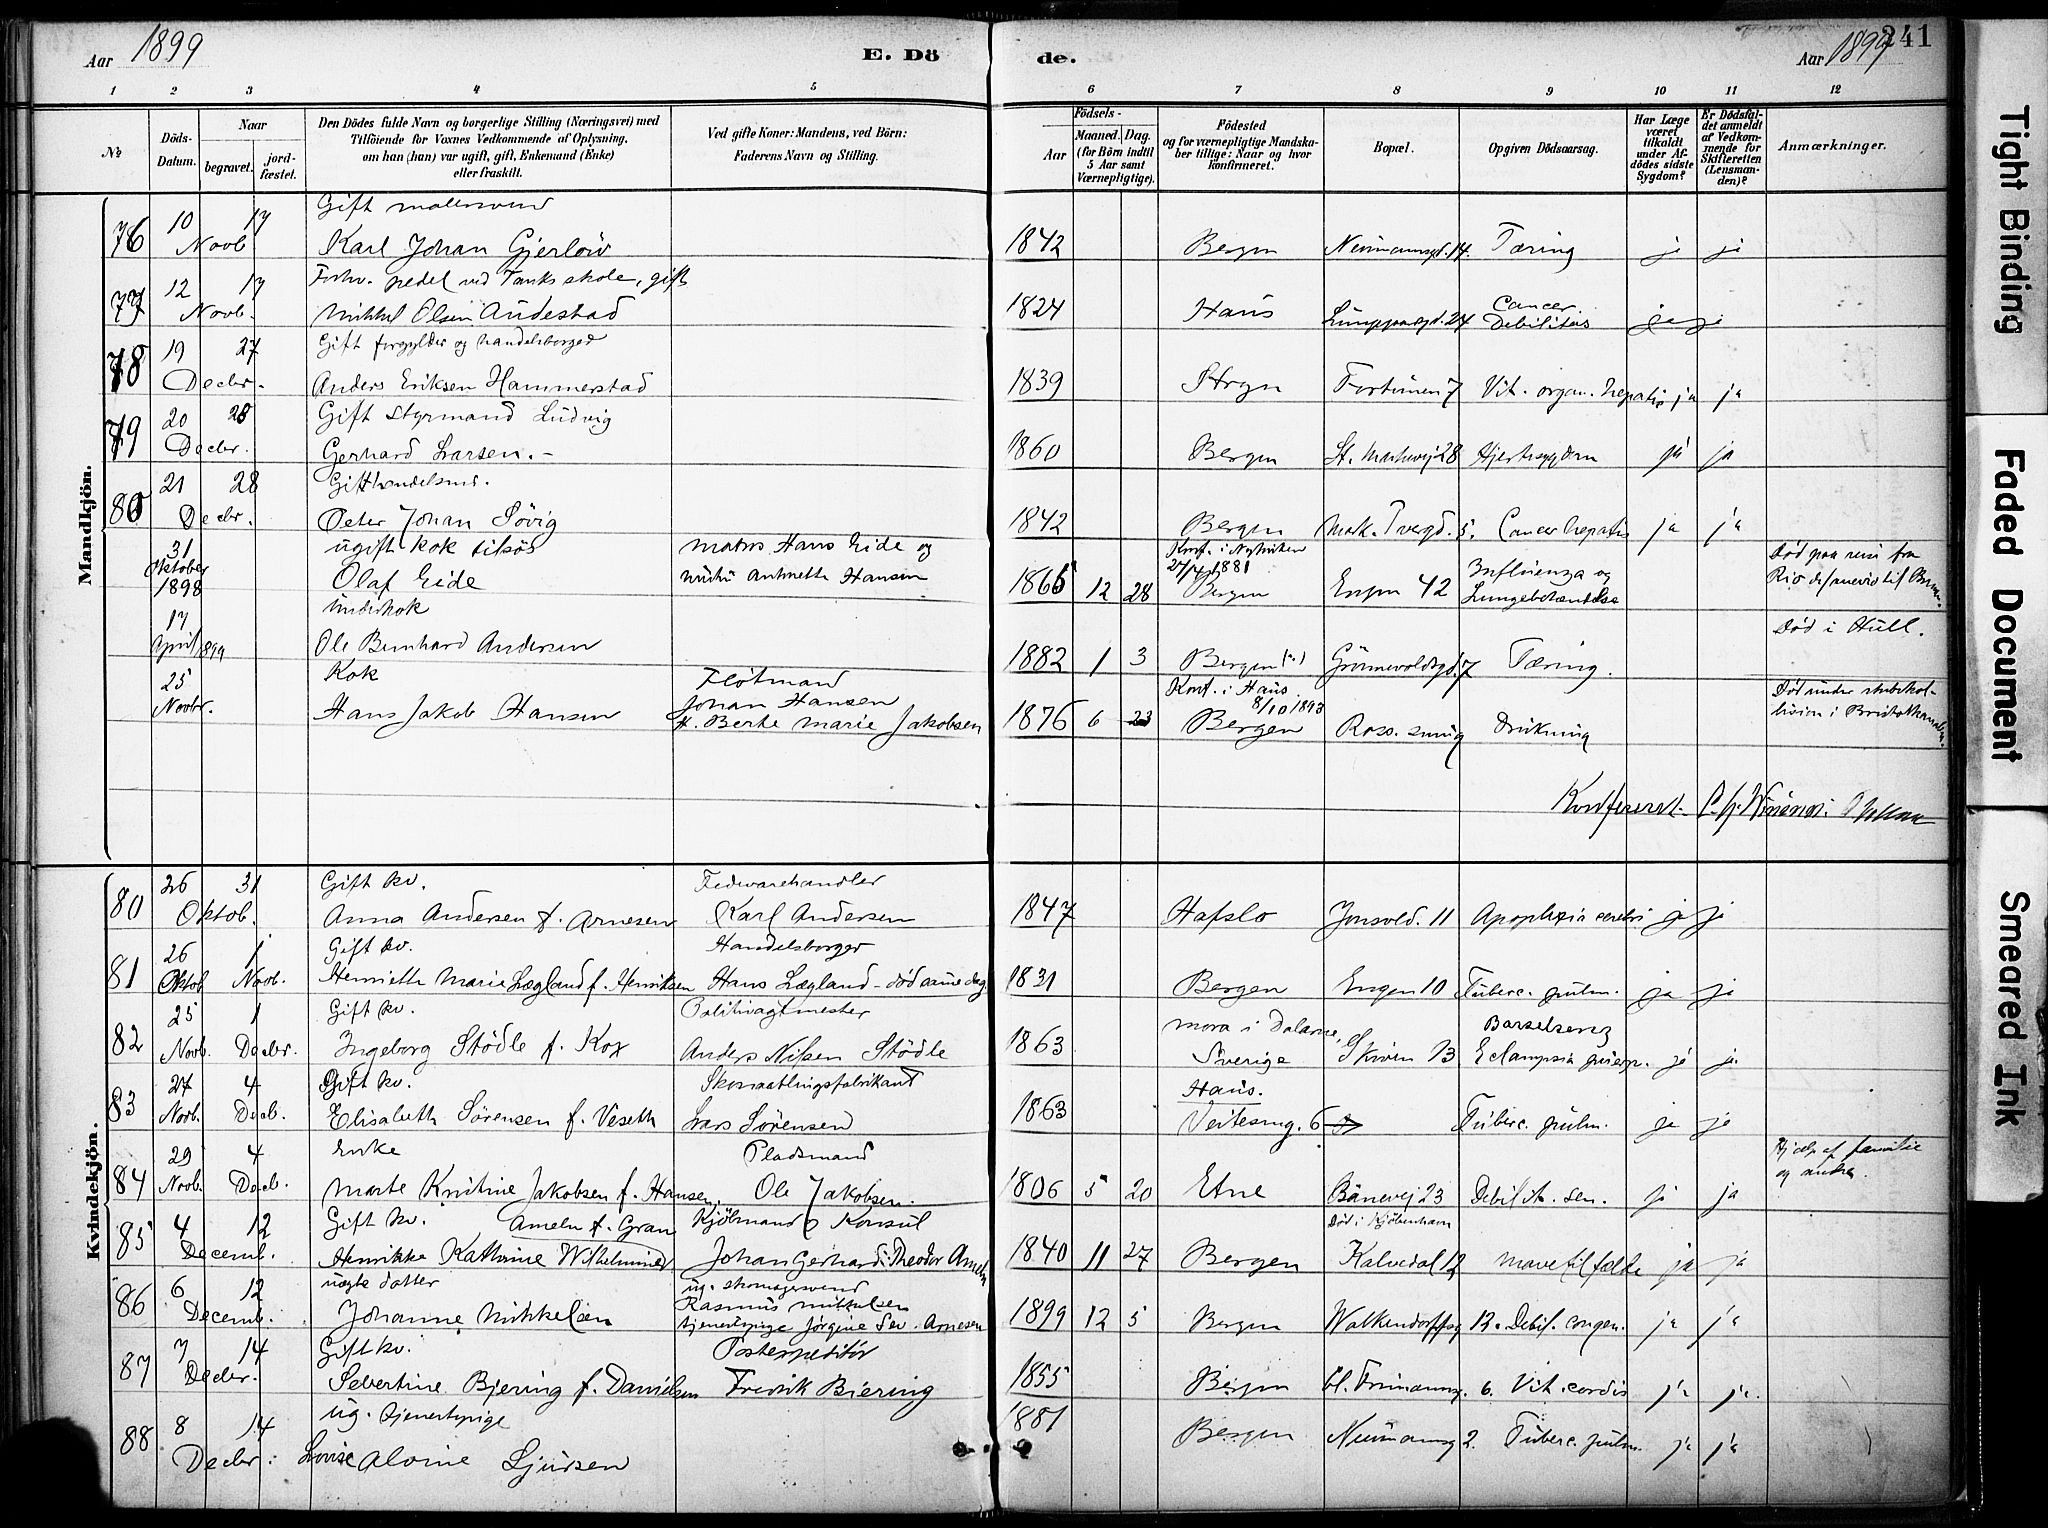 Aar 1899
E. Dö
de.
Aar 1899
241
1 2 3 4 5 6 7 8 9 10 11 12
№
Döds-Datum.
Naar
begravet. jordfæstet.
Den Dödes fulde Navn og borgerlige Stilling (Næringsvei) med
Tilföiende for Voxnes Vedkommende af Oplysning,
om han (han) var ugift, gift, Enkemand (Enke)
eller fraskilt.
Ved gifte Koner: Mandens, ved Börn:
Faderens Navn og Stilling.
Födsels-
Aar Maaned. Dag.
(for Börn indtil
5 Aar samt
Værnepligtige).
Födested
og for værnepligtige Mandska-
ber tillige: Naar og hvor
konfirmeret.
Bopæl.
Opgiven Dödsaarsag.
Har Læge
været
tilkaldt
under Af-
dödes sidste
Sygdom?
Er Dödsfal-
det anmeldt
af Vedkom-
mende for
Skifteretten
(Lensman-
den)?
Anmærkninger.
Mandkjön.
Gift malersvend
76 10 Novb 17 Karl Johan Gjerlöw 1842 Bergen Neumannsgd. 14. Tæring ja ja
Forhv. pedel ved Tanks skole, gift
77 12 Novb. 17 Mikkel Olsen Audestad 1824 Haus 24 Cancer Debilitas ja ja
Gift forgylder og handelsborger
78 19 Decbr. 27 Anders Eriksen Hammerstad 1839 Stryn Fortunen 7 Vit. organ. hepatis ja ja
Gift styrmand Ludvig
79 20 Decbr. 28 Gerhard Larsen. - 1860 Bergen St. Markevej 28 Hjertesygdom ja ja
Gift handelsmd.
80 21 Decbr. 28 Peter Johan Sövig 1842 Bergen Mark. Tvergd. 5. Cancer hepatis ja ja
31 Oktober 1898
ugift kok tilsös
Olaf Eide
Matros Hans Eide og
hustru Antonette Hansen
1865 12 28
Konf. i Nykirken
27/4 1881
Bergen
Engen 42
Influenza og
Lungebetændelse
Död paa reise fra
Rio de Janeiro til
17 April 1899
Underkok
Ole Bernhard Andersen 1882 1 3 Bergen (?) Grönnevoldsgd. 7 Tæring.
Död i Hull.
25 Novbr.
Kok
Hans Jakob Hansen
Flötmand
Johan Hansen
H. Berte Marie Jakobsen
1876 6 23
Konf. i Haus
8/10 1893
Bergen
Ross. smug
Drukning
Död under skibskol-
lision i Bristolkanalen.
Konfereret.
Kvindekjön.
Gift kv. Fedevarehandler
80 26 Oktob. 31 Anna Andersen f. Arnesen Karl Andersen 1847 Hafslo Jonsvold. 11 Apoplexia cerebri ja ja
Gift kv. Handelsborger
81 26 Oktob 1 Novb. Henriette Marie Lægland f. Henriksen Hans Lægland - död samme dag. 1831 Bergen Engen 10 Tuberc. pulm. ja ja
Gift kv. Politivagtmester
82 25 Novb. 1 Decbr. Ingeborg Stödle f. Kox Anders Nilsen Stödle 1863 Mora i Dalarne, Sverige Skiven 13 Barselseng Eclampsia puerp. ja ja
Gift kv. Skomaatlingsfabrikant
83 27 Novb. 4 Decb. Elisabeth Sörensen f. Veseth Lars Sörensen 1863 Haus. Veitesmug. 6 Tuberc. pulm. ja ja
Enke Pladsmand
84 29 Novb. 4 Decb. Marte Kristine Jakobsen f. Hansen. Ole Jakobsen. 1806 5 20 Etne Banevej 23 Debilit. sen. ja ja
Hjælp af familie
og andre.
Gift kv. Ameln f. Gran Kjöbmand & Konsul Död i Kjöbenhavn
85 4 Decemb. 12 Henrikke Kathrine Wilhelmine Johan Gerhard Theodor Ameln 1840 11 27 Bergen Kalvedal 12 Mavetilfælde ja ja
uægte datter ug. skomagersvend
86 6 Decemb. 12 Johanne Mikkelsen Rasmus Mikkelsen
tjenestepige Jörgine Sev. Arnesen
1899 12 5 Bergen Walkendorffsg 13. Debil. congen. ja ja
Gift kv. Postexpeditör
87 7 Decbr. 14 Severtine Bjering f. Danielsen Fredrik Bjering 1855 Bergen 6. Vit. cordis ja ja.
ug. tjenestepige
88 8 Decbr. 14 Lovise Alvine Sjursen 1881 Bergen Neumannsg 2. Tuberc. pulm. ja ja
Tight Binding
Faded Document
Smeared Ink